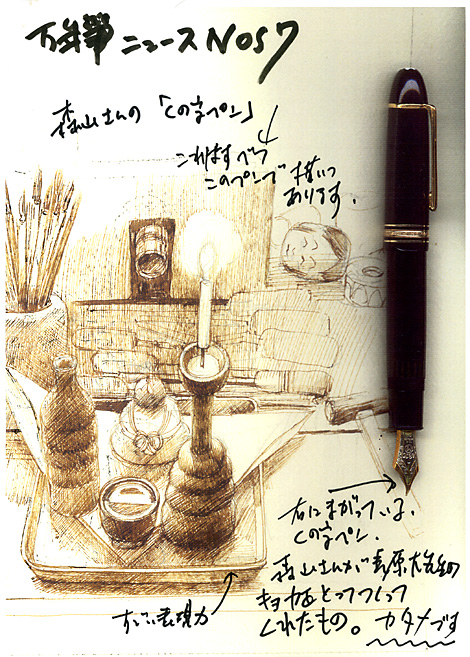 万年筆 ニュース No57
森山さんの「くの字ペン」
これはすべて
このペンで描いて
あります.
右にまがっている.
くの字ペン.
森山さんが 大先生の
キョカをとってつくって
くれたもの。カタメです
すごい表現力